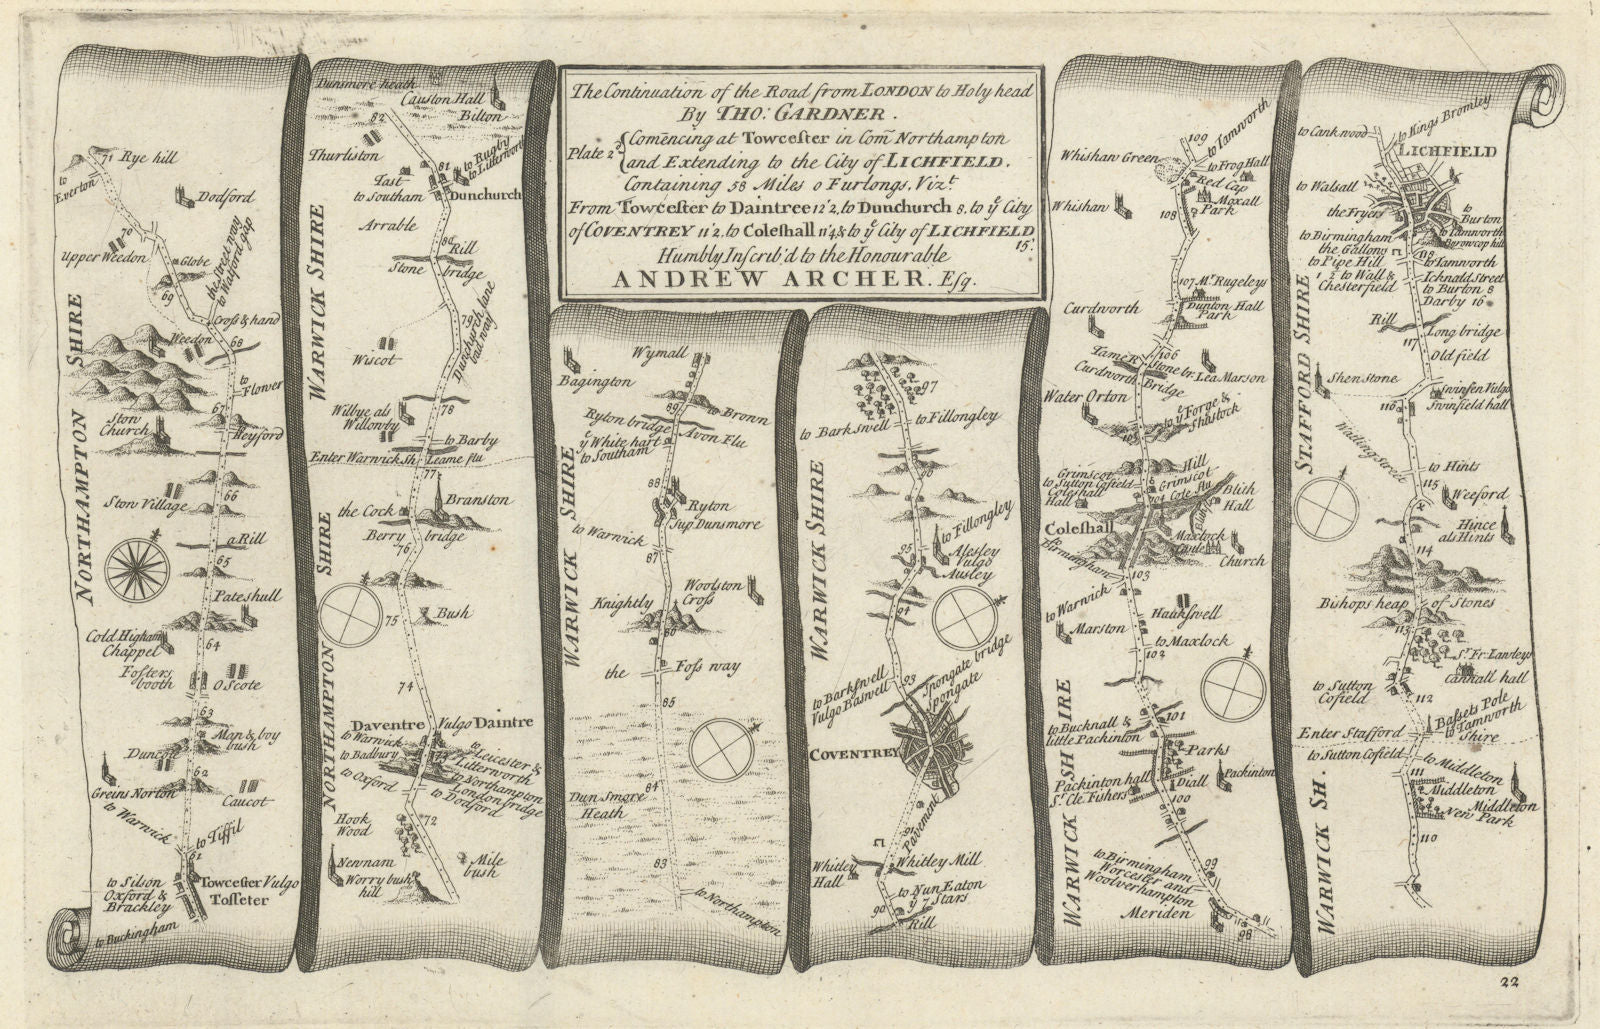 The Continuation of the Road from LONDON to Holyhead
By THO: GARDNER.
Plate 2d.
Comencing at Towcester in Com Northampton
and Extending to the City of LICHFIELD.
Containing 58 Miles 0 Furlongs, Vizt.
From Towcester to Daintree 12'2, to Dunchurch 8. to ye City
of COVENTREY 11'2, to Coleshall 11'4, & to ye City of LICHFIELD
15'.
Humbly Inscrib'd to the Honourable
ANDREW ARCHER. Esq.
71
Rye hill
to
Everton
Dodford
70
Upper Weedon
Globe
the street way
to Watford gap
69
Cross & hand
Weedon
68
to
Flower
67
Stow
Church
Heyford
66
Stow Village
a Rill
65
Pateshull
Cold Higham
Chappel
64
Fosters
booth
O Scote
63
Man & boy
bush
Duncot
62
Greins Norton
Caucot
to Warwick
to Tiffil
61
to Silson
Oxford &
Brackley
Towcester Vulgo
Tosseter
to Buckingham
NORTHAMPTON SHIRE
Dunsmore heath
Causton Hall
Bilton
82
Thurliston
81
to Rugby
to Litterworth
Tast
to Southam
Dunchurch
Arrable
80
Rill
Stone bridge
79
Dunchurch lane
bad way
Wiscot
Wilbye als
Willowby
78
to Barby
Enter Warwick Sh
Leame flu
77
Branston
the Cock
Berry bridge
76
75
Bush
74
Daventre Vulgo Daintre
to Warwick
to Badbury
73
to Leicester &
Litterworth
to Northampton
London bridge
to Oxford
to Dodford
72
Hook
Wood
Newnam
Worry bush
hill
Mile
bush
WARWICK SHIRE
NORTHAMPTON SHIRE
Wymall
Bagington
89
to Brown
Ryton bridge
Avon Flu
ye White hart
to Southam
88
Ryton
Sup Dunsmore
to Warwick
87
Woolston
Cross
Knightly
86
the Foss way
85
84
Dun Smore
Heath
83
to Northampton
WARWICK SHIRE
97
to Barkswell
to Fillongley
96
to Fillongley
95
Alesley
Vulgo
Ausley
94
to Barkswell
Vulgo Baswell
93
Spongate bridge
Spongate
COVENTREY
Pavement
Whitley
Hall
Whitley Mill
to Nun Eaton
ye 7 Stars
90
Rill
WARWICK SHIRE
109
to Tamworth
Whishaw Green
to Frog Hall
Red Cap
Moxall
Park
Whishaw
108
107
Mr. Rugeleys
Dunton Hall
Park
Curdworth
106
Tame R
Stone br.
Curdworth Bridge
Lea Marson
Water Orton
to ye Forge &
Shustock
105
Grimscot Hill
to Sutton Cofield
Coleshall
Hall
Grimscot
104
Cole flu
Blith
Hall
Coleshall
Birmingham
Maxlock
Castle
Church
103
to Warwick
Marston
Haukswell
to Maxlock
102
101
to Bucknall &
little Packinton
Parks
Packinton hall
Sr. Cle. Fishers
Diall
Packinton
100
99
to Birmingham
Worcester and
Woolverhampton
Meriden
98
WARWICK SHIRE
to Cank wood
to Kings Bromley
LICHFIELD
to Walsall
the Fryers
to Burton
to Tamworth
Byroncop hill
to Birmingham
the Gallons
to Pipe Hill
1 2 to Wall &
Chesterfield
118
to Tamworth
Icknald Street
to Burton 8
Darby 16
Rill
Long bridge
117
Old field
Shen Stone
Swinfen Vulgo
Swinfield hall
116
Watling street
to Hints
115
Weeford
Hince
als Hints
114
Bishops heap of Stones
113
Sr. Fr. Lawleys
Cannall hall
to Sutton
Cofield
112
Bassets Pole
to Tamworth
Enter Stafford Shire
to Sutton Cofield
to Middleton
111
Middleton
Middleton
New Park
110
STAFFORD SHIRE
WARWICK SH.
22